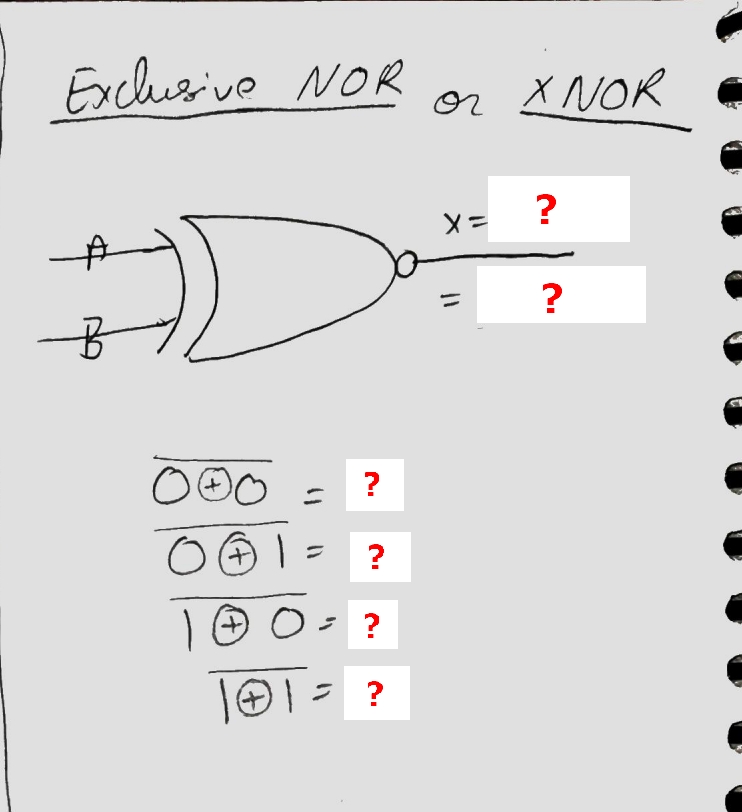 Exclusive NOR or XNOR
A
x= ?
= ?
B
0⊕0̅ = ?
0⊕1̅ = ?
1⊕0̅ = ?
1⊕1̅ = ?